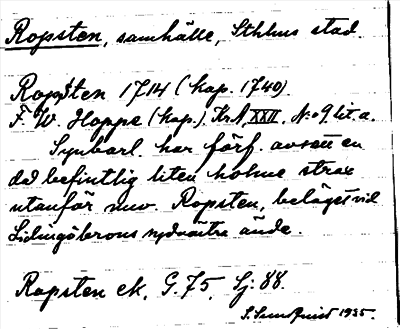 Ropsten, samhälle, Sthlms stad.
Ropsten 1714 (kop. 1740).
F. W. Hoppe (kop.), Kr.A. XXII, No 9 lit. a.
Synbarl. har förf. avsett en
då befintlig liten holme strax
utanför nuv. Ropsten, belägen vid
Lidingöbrons nydvästra ände.
Ropsten ek. G. 75, Sj. 88.
S. Sundquist 1935.